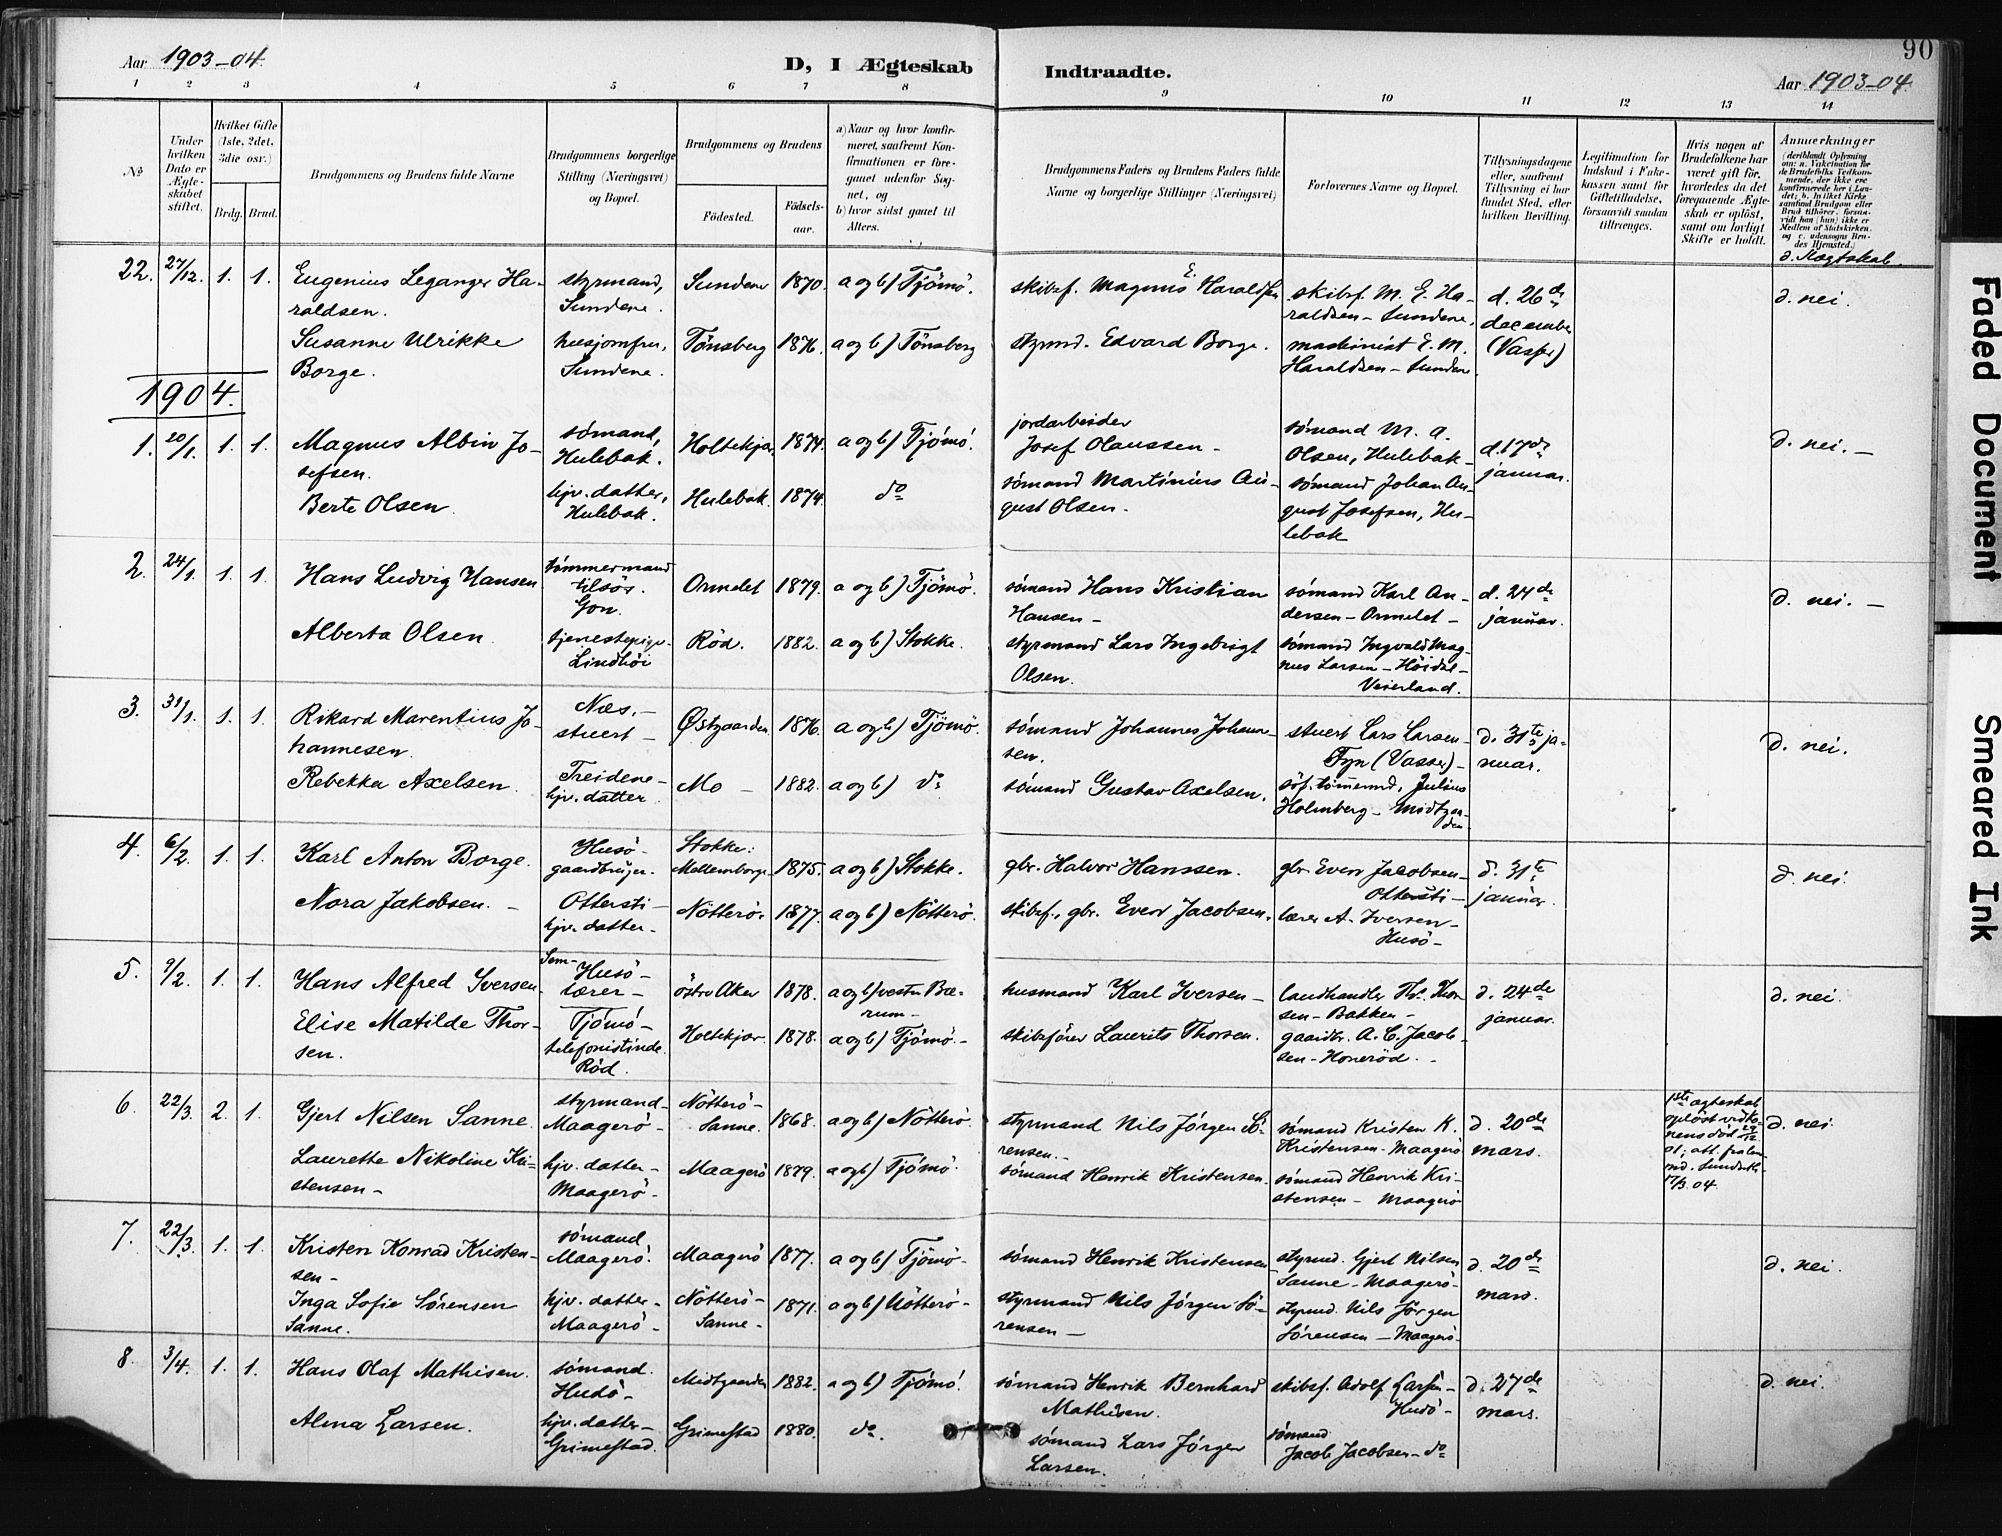 90
Aar 1903-04.
D, I Ægteskab Indtraadte.
Aar 1903-04.
1 2 3 4 5 6 7 8 9 10 11 12 13 14
No
Under hvilken Dato er Ægteskabet stiftet.
Hvilket Gifte (1ste, 2det, 3die osv.)
Brdg. Brud.
Brudgommens og Brudens fulde Navne
Brudgommens borgerlige Stilling (Næringsvei) og Bopæl.
Brudgommens og Brudens
Fødested.
Fødselsaar.
a) Naar og hvor konfirmeret, saafremt Konfirmationen er foregaaet udenfor Sognet, og
b) hvor sidst gaaet til Alters.
Brudgommens Faders og Brudens Faders fulde Navne og borgerlige Stillinger (Næringsvei)
Forlovernes Navne og Bopæl.
Tillysningsdagene eller, saafremt Tillysning ei har fundet Sted, efter hvilken Bevilling.
Legitimation for Indskud i Enkekassen samt for Giftetilladelse, forsaavidt saadan tiltrænges.
Hvis nogen af Brudefolkene har været gift før, hvorledes da det foregaaende Ægteskab er opløst, samt om lovligt Skifte er holdt.
Anmerkninger
(deriblandt Oplysning om: a. Vakcination for de Brudefolks Vedkommende, der ikke ere konfirmerede her i Landet; b. hvilket Kirkesamfund Brudgom eller Brud tilhører, forsaavidt han (hun) ikke er Medlem af Statskirken, og c. udensogns Brudes Hjemsted.)
d. Slægtskab.
22. 27/12. 1. 1. Eugenius Leganger Haraldsen. styrmand, Sundene. Sundene 1870. a og b) Tjömö. skibsf. Magnus E. Haraldsen skibsf. M. E. Haraldsen - Sundene. d. 26de december (Vasser) d. nei.
Susanne Ulrikke Borge. husjomfru, Sundene. Tönsberg 1876. a og b) Tönsberg styrmd. Edvard Borge. maskinist E. M. Haraldsen - Sundene
1904.
1. 20/1. 1. 1. Magnus Albin Josefsen. sømand, Hulebak. Holtekjær 1874. a og b) Tjömö. jordarbeider Josef Olaussen - sømand M. A. Olsen, Hulebak - d. 17de januar. d. nei. -
Berte Olsen hjv. datter, Hulebak. Hulebak 1874. do sømand Martinius August Olsen - sømand Johan August Josefsen, Hulebak
2. 24/1. 1. 1. Hans Ludvig Hansen tømmermand tilsös. Gon. Ormelet 1879. a og b) Tjömö. sømand Hans Kristian Hansen - sømand Karl Andersen - Ormelet - d. 24de januar. d. nei. -
Alberta Olsen tjenestepige - Lindhöi Röd. 1882. a og b) Stokke. styrmand Lars Ingebrigt Olsen. sømand Ingvald Magnus Larsen - Höidal - Veierland.
3. 31/1. 1. 1. Rikard Marentius Johannesen Næs. - stuert - Østgaarden 1876. a og b) Tjömö. sømand Johannes Johannesen. stuert Lars Larsen - Fyn (Vasser) - d. 31te januar. d. nei.
Rebekka Axelsen Treidene - hjv. datter Mo - 1882. a og b) do sømand Gustav Axelsen. söf. tömermd. Julius Holmberg - Midtgaarden
4. 6/2. 1. 1. Karl Anton Borge. Husö - gaardbruger. Stokke: Mellemborge 1875. a og b) Stokke. gbr. Halvor Hanssen. gbr. Even Jacobsen - Ottersti - d. 31te januar. d. nei.
Nora Jakobsen. - Ottersti - hjv. datter - Nötterö. 1877. a og b) Nötterö. skibsf., gbr. Even Jacobsen. lærer A. Iversen - Husö -
5. 9/2. 1. 1. Hans Alfred Iversen Sem - Husö - lærer - östre Aker 1878. a og b) vestre Bærum - husmand Karl Iversen - landhandler Th. Thorsen - Bakken - d. 24de januar. d. nei.
Elise Matilde Thorsen. Tjömö - telefonistinde. Röd. Holtekjær 1878. a og b) Tjömö. - skibsfører Laurits Thorsen. gaardbr. A. C. Jacobsen - Honeröd. -
6. 22/3. 2. 1. Gjert Nilsen Sanne. styrmand - Maagerö - Nötterö - Sanne. 1868. a og b) Nötterö styrmand Nils Jörgen Sörensen. - sømand Kristen K. Kristensen - Maagerö d. 20de mars. 1ste ægteskab oplöst ved konens död 29/12 01; att. fra lensmd. Sundene 17/3. 04. d. nei
Laurette Nikoline Kristensen - hjv. datter - Maagerö - Maagerö 1879. a og b) Tjömö. sømand Henrik Kristensen. sømand Henrik Kristensen - Maagerö
7. 22/3. 1. 1. Kristen Konrad Kristensen - sømand Maagerö. Maagerö 1877. a og b) Tjömö - sømand Henrik Kristensen styrmd. Gjert Nilsen Sanne - Maagerö - d. 20de mars. d. nei.
Inga Sofie Sørensen Sanne. hjv. datter - Maagerö - Nötterö - Sanne - 1871. a og b) Nötterö - styrmand Nils Jörgen Sörensen - styrmd. Nils Jörgen Sörensen - Maagerö
8. 3/4. 1. 1. Hans Olaf Mathisen. sømand. Hudö - Midtgaarden 1882. a og b) Tjömö. sømand Henrik Bernhard Mathisen. skibsf. Adolf Larsen - Hudö - d. 27de mars. d. nei.
Alma Larsen. hjv. datter - Grimestad. Grimestad 1880. do. sømand Lars Jörgen Larsen. sømand Jacob Jacobsen - do
Faded Document
Smeared Ink